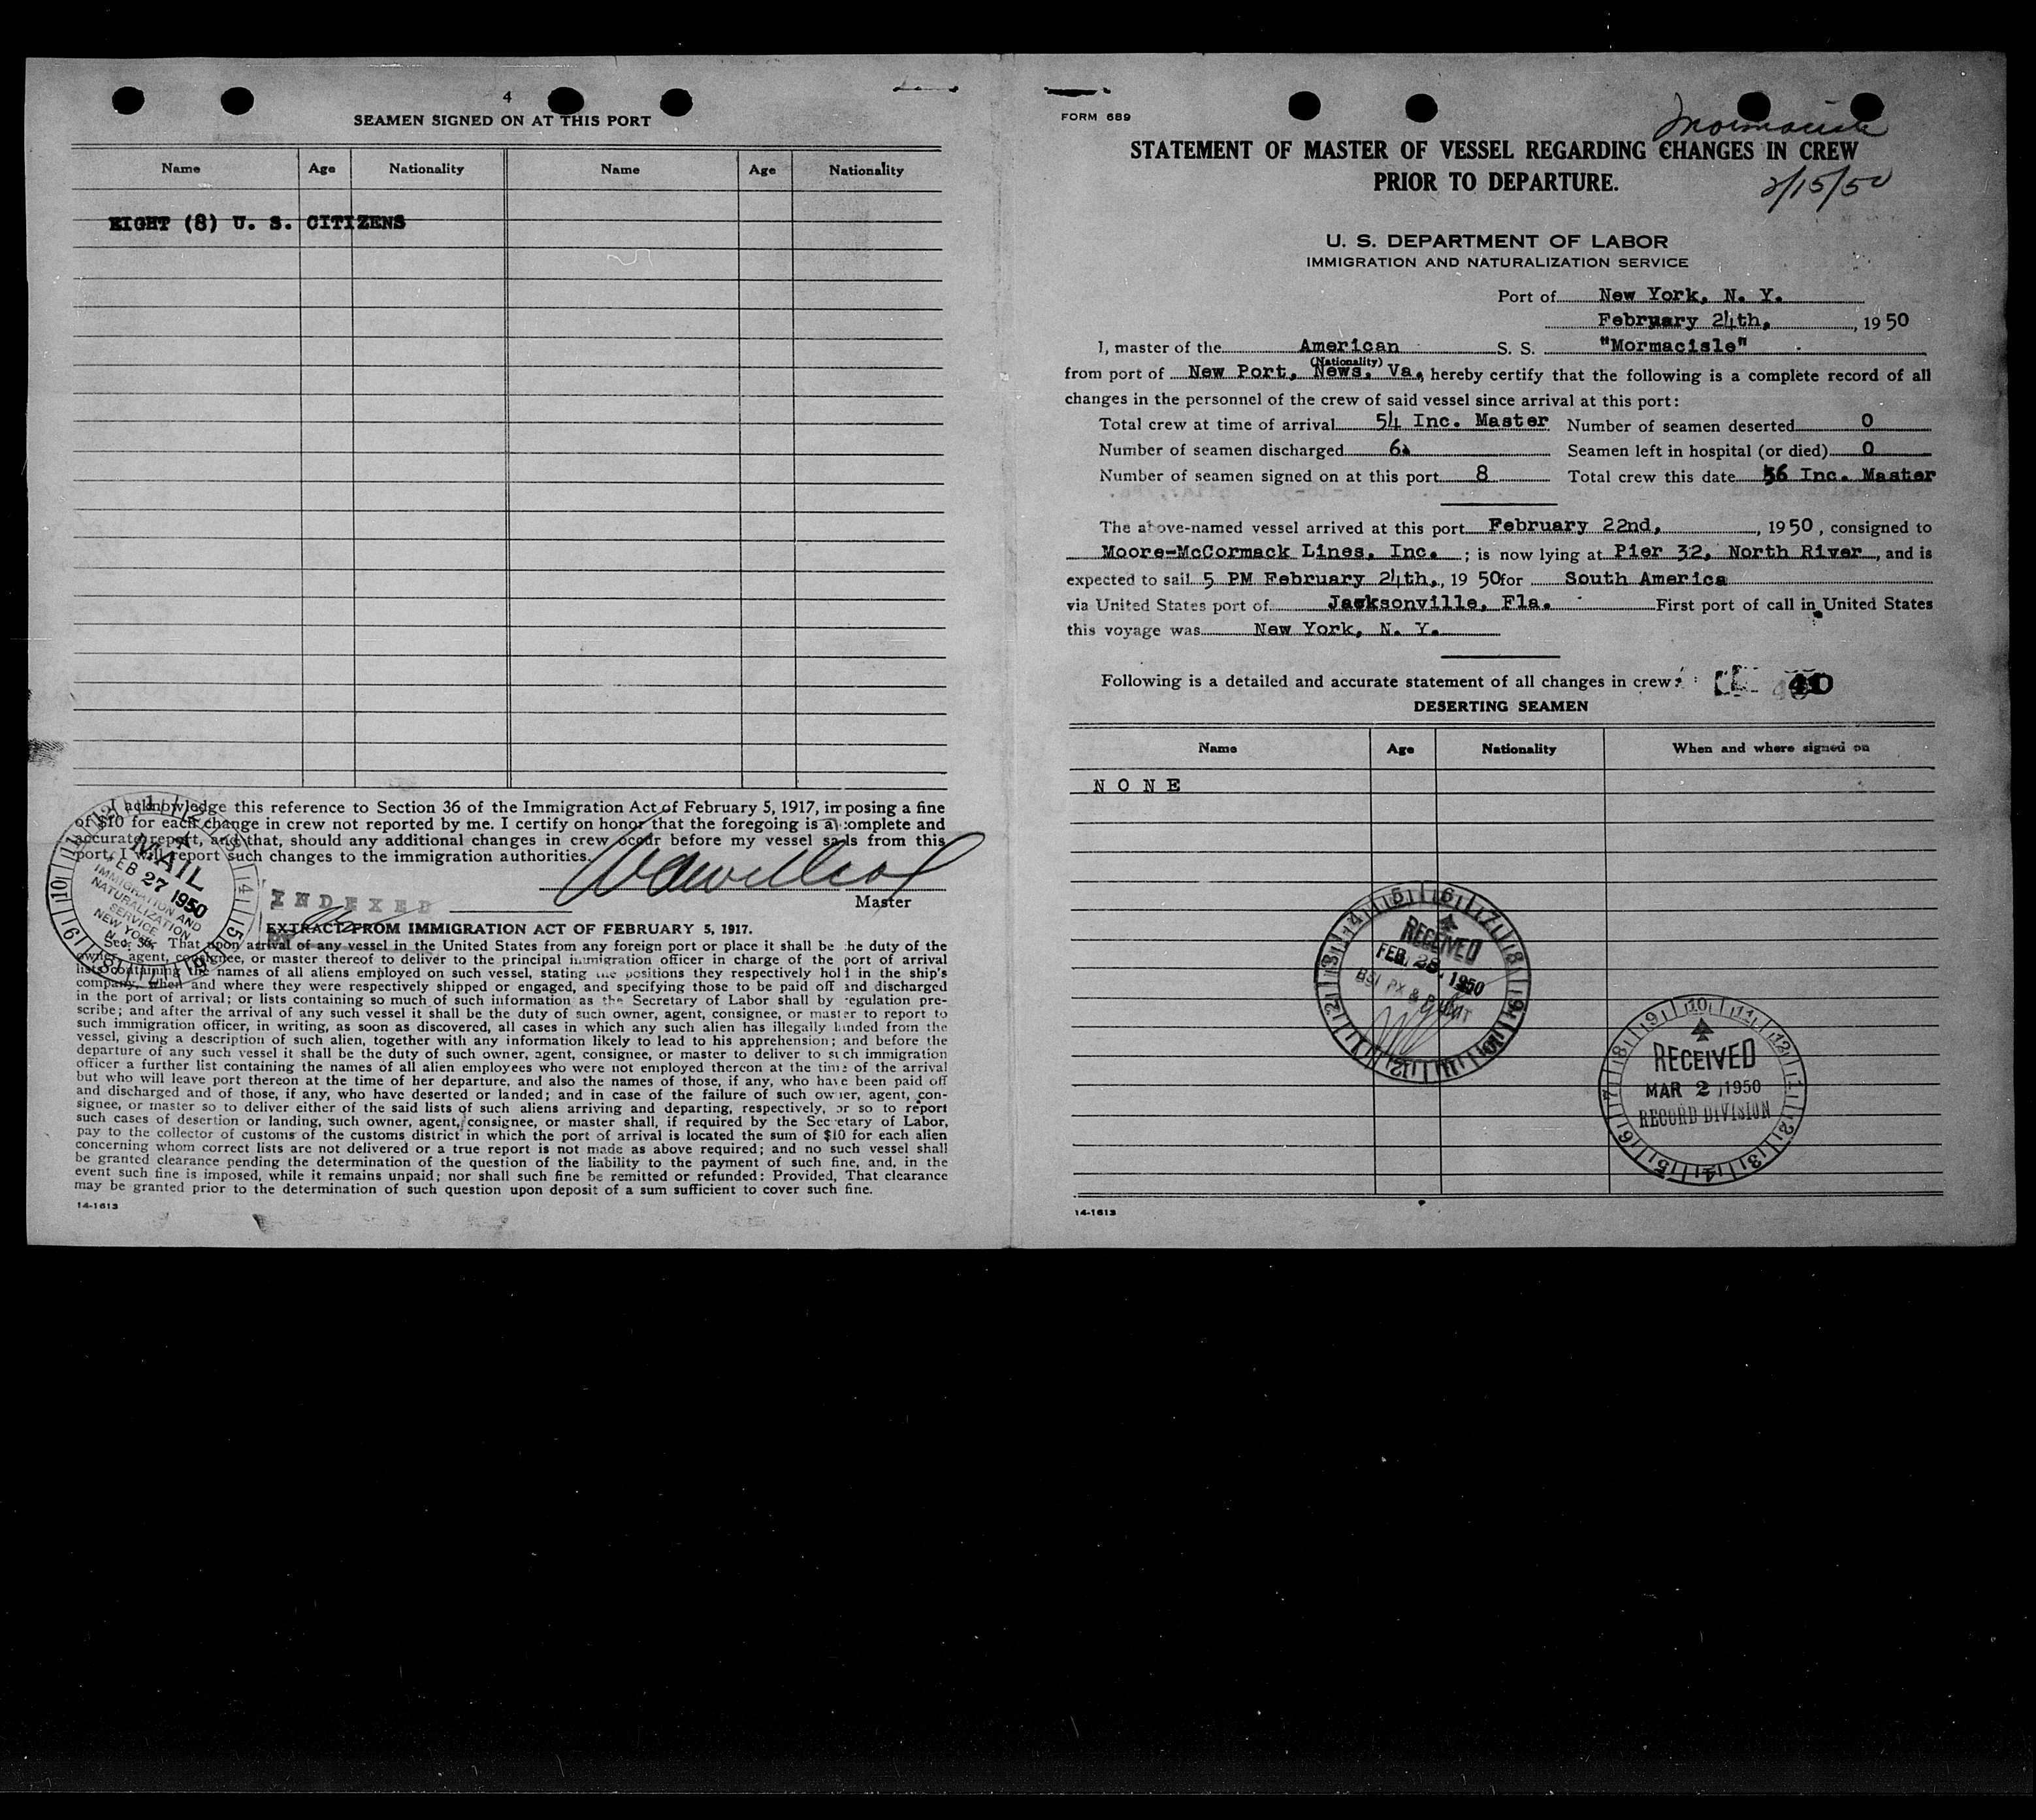 4
SEAMEN SIGNED ON AT THIS PORT
Name Age Nationality Name Age Nationality
EIGHT (8) U. S. CITIZENS
I acknowledge this reference to Section 36 of the Immigration Act of February 5, 1917, imposing a fine
of $10 for each change in crew not reported by me. I certify on honor that the foregoing is a complete and
accurate report, and that, should any additional changes in crew occur before my vessel sails from this
port, I will report such changes to the immigration authorities.
Master
MAIL
FEB 27 1950
IMMIGRATION AND
NATURALIZATION
SERVICE
NEW YORK
N. Y.
INDEXED
EXTRACT FROM IMMIGRATION ACT OF FEBRUARY 5, 1917.
Sec. 36. That upon arrival of any vessel in the United States from any foreign port or place it shall be the duty of the
owner, agent, consignee, or master thereof to deliver to the principal immigration officer in charge of the port of arrival
lists containing the names of all aliens employed on such vessel, stating the positions they respectively hold in the ship's
company, when and where they were respectively shipped or engaged, and specifying those to be paid off and discharged
in the port of arrival; or lists containing so much of such information as the Secretary of Labor shall by regulation pre-
scribe; and after the arrival of any such vessel it shall be the duty of such owner, agent, consignee, or master to report to
such immigration officer, in writing, as soon as discovered, all cases in which any such alien has illegally landed from the
vessel, giving a description of such alien, together with any information likely to lead to his apprehension; and before the
departure of any such vessel it shall be the duty of such owner, agent, consignee, or master to deliver to such immigration
officer a further list containing the names of all alien employees who were not employed thereon at the time of the arrival
but who will leave port thereon at the time of her departure, and also the names of those, if any, who have been paid off
and discharged and of those, if any, who have deserted or landed; and in case of the failure of such owner, agent, con-
signee, or master so to deliver either of the said lists of such aliens arriving and departing, respectively, or so to report
such cases of desertion or landing, such owner, agent, consignee, or master shall, if required by the Secretary of Labor,
pay to the collector of customs of the customs district in which the port of arrival is located the sum of $10 for each alien
concerning whom correct lists are not delivered or a true report is not made as above required; and no such vessel shall
be granted clearance pending the determination of the question of the liability to the payment of such fine, and, in the
event such fine is imposed, while it remains unpaid; nor shall such fine be remitted or refunded: Provided, That clearance
may be granted prior to the determination of such question upon deposit of a sum sufficient to cover such fine.
14-1613
FORM 689
Mormacisle
STATEMENT OF MASTER OF VESSEL REGARDING CHANGES IN CREW
PRIOR TO DEPARTURE.
2/15/50
U. S. DEPARTMENT OF LABOR
IMMIGRATION AND NATURALIZATION SERVICE
Port of New York, N. Y.
February 24th, , 1950
I, master of the American S. S. "Mormacisle"
(Nationality)
from port of New Port, News, Va., hereby certify that the following is a complete record of all
changes in the personnel of the crew of said vessel since arrival at this port:
Total crew at time of arrival 54 Inc. Master Number of seamen deserted 0
Number of seamen discharged 6 Seamen left in hospital (or died) 0
Number of seamen signed on at this port 8 Total crew this date 56 Inc. Master
The above-named vessel arrived at this port February 22nd, , 1950, consigned to
Moore-McCormack Lines, Inc. ; is now lying at Pier 32, North River, and is
expected to sail 5 PM February 24th,, 1950 for South America
via United States port of Jacksonville, Fla. First port of call in United States
this voyage was New York, N. Y.
Following is a detailed and accurate statement of all changes in crew:
DESERTING SEAMEN
Name Age Nationality When and where signed on
NONE
RECEIVED
FEB. 28, 1950
RECEIVED
MAR 2 1950
RECORD DIVISION
14-1613